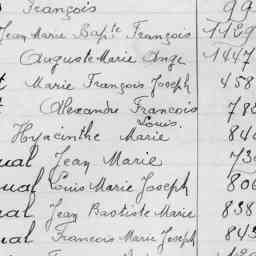 François 99
Jean Marie Bapte François 1129
Auguste Marie Ange 1447
Marie François Joseph 458
Alexandre Francois 78
Louis.
Hyacinthe Marie 84
ual Jean Marie 73
ual Louis Marie Joseph 806
ral Jean Baptiste Marie 838
ual Francois Marie Joseph 843